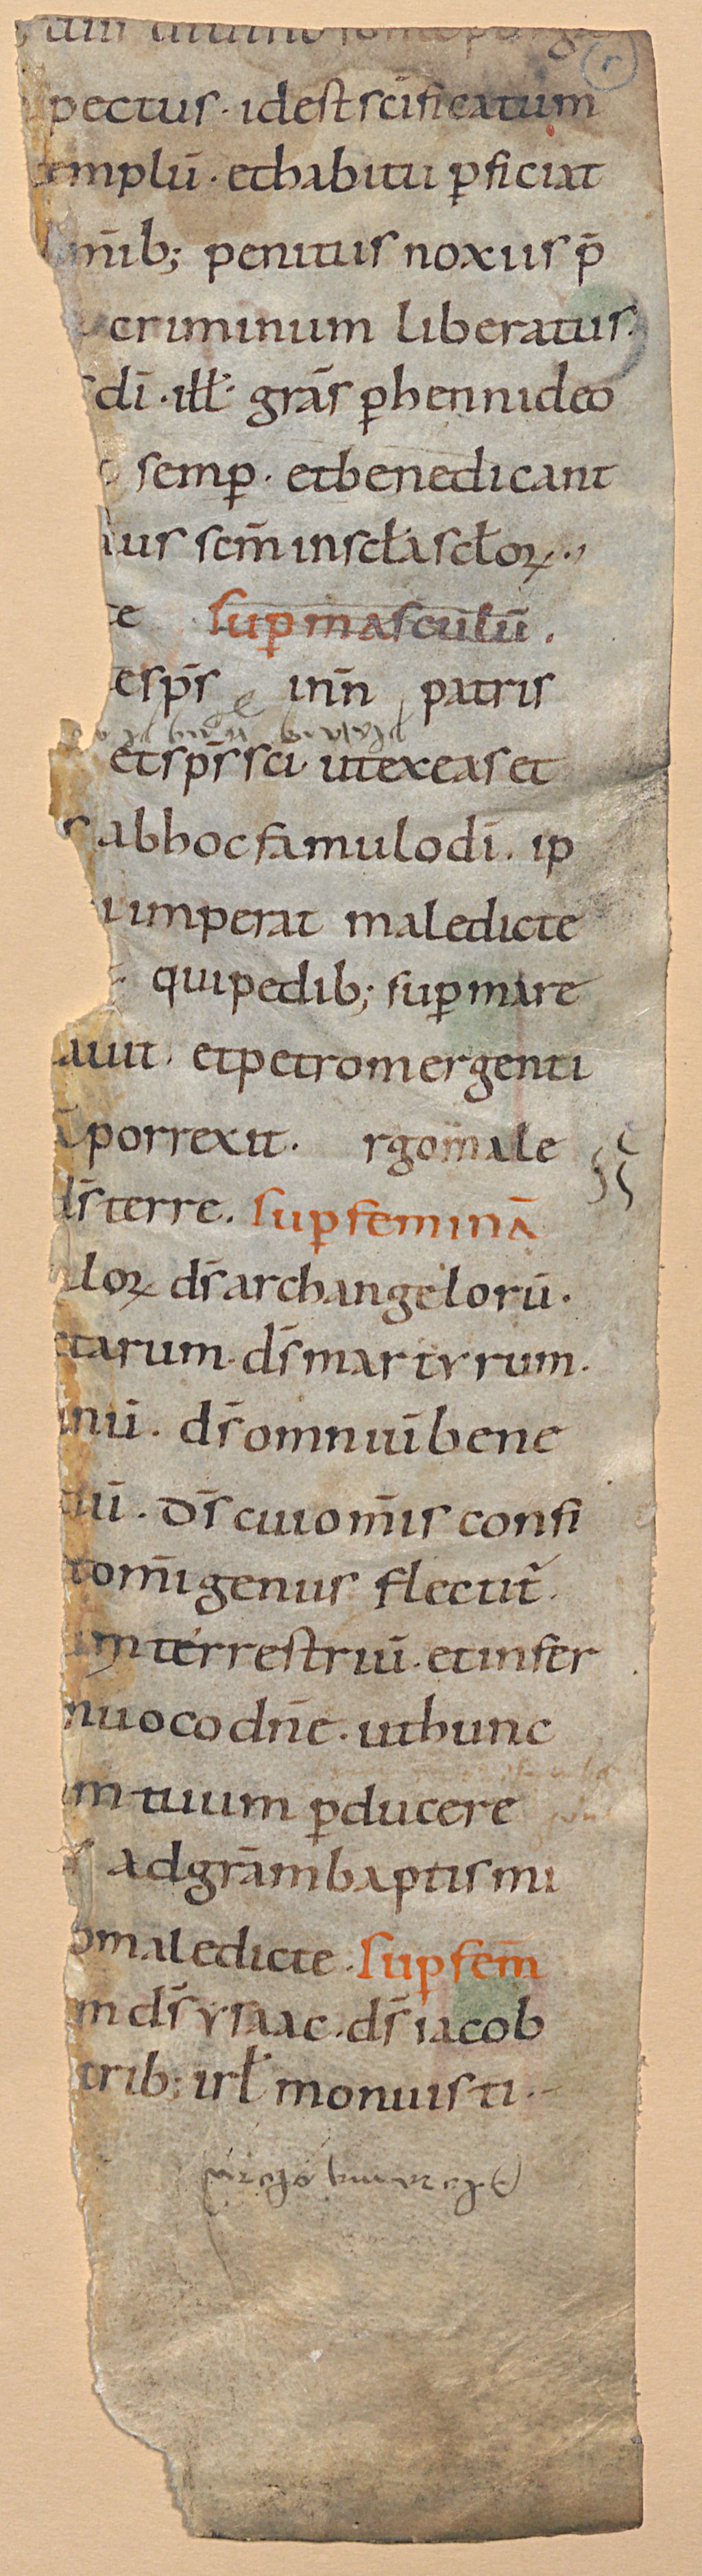 pectus · id est scificatum
mplū · et habitu ꝑficiat
mīb; penitus noxiis p̄
criminum liberatus.
di · ill· grās ꝑhenni deo
semꝑ · et benedicant
ius scm̄ in scła scłoꝝ ·,
te suꝑ masculū.
e sps̄ in n̄ patris
et sps̄ sci ut exeas et
s ab hoc famulo dī . ip
imperat maledicte
qui pedib; suꝑ mare
auit . et petro mergenti
porrexit . rgo male
ds̄ terre. suꝑ feminā
loꝝ ds̄ archangelorū ·
tarum · ds̄ martyrum ·
inū . ds̄ omniū bene
iū . ds̄ cui om̄is confi
om̄i genus flectit̄ .
m terrestriū . et infer
inuoco dn̄e . ut hunc
m tuum ꝑducere
ad grām baptismi
o maledicte . suꝑ fem̄
m ds̄ ysaac . ds̄ iacob
trib; isrł monuisti ·